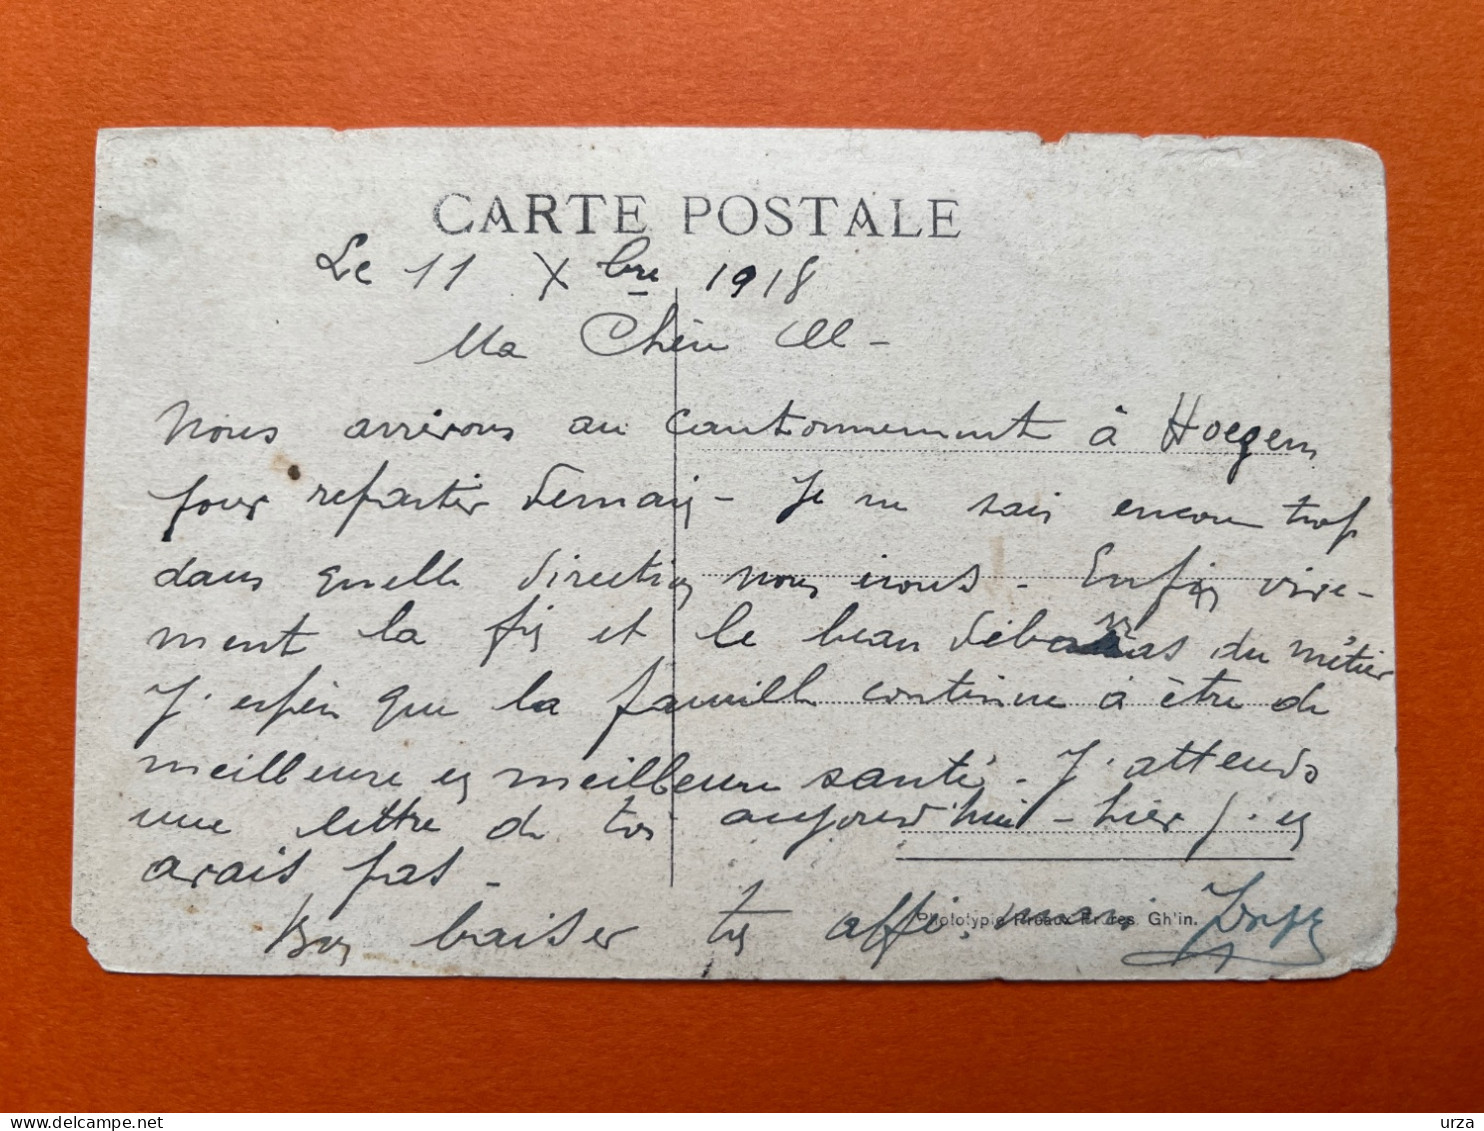 CARTE POSTALE
Le 11 Xbre 1918
Ma Chère M-
Nous arrivons au cantonnement à Hoegem
pour repartir demain - Je ne sais encore trop
dans quelle direction nous irons - Enfin vive-
ment la fin et le beau débarras du métier
J'espère que la famille continue à être de
meilleure en meilleure santé - J'attends
une lettre de toi aujourd'hui - hier j'en
avais pas -
Bon baiser ton affé. mari
Phototypie Préaux Frères Gh'in.
urza